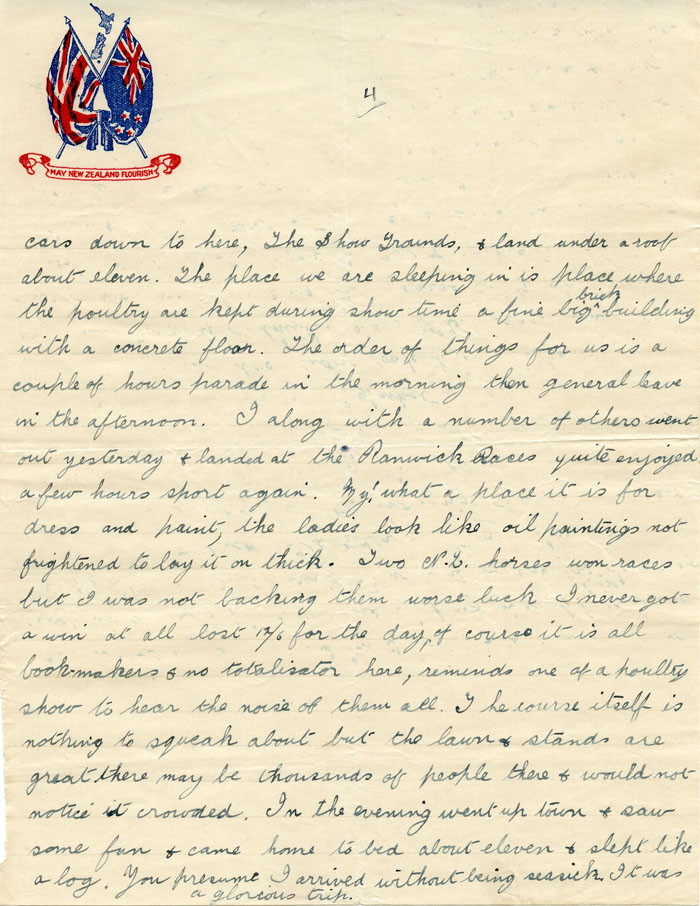 MAY NEW ZEALAND FLOURISH
4
cars down to here, The Show Grounds, & land under a roof
about eleven. The place we are sleeping in is place, where
the poultry are kept during show time a fine big brick building
with a concrete floor. The order of things for us is a
couple of hours parade in the morning then general leave
in the afternoon. I along with a number of others went
out yesterday & landed at the Ranwick Races quite enjoyed
a few hours sport again. My! what a place it is for
dress and paint, the ladies look like oil paintings not
frightened to lay it on thick. Two N.Z. horses won races
but I was not backing them worse luck I never got
a win at all lost 12/6 for the day, of course it is all
book-makers & no totalisator here, reminds one of a poultry
show to hear the noise of them all. The course itself is
nothing to squeak about but the lawn & stands are
great, there may be thousands of people there & would not
notice it crowded. In the evening went up town & saw
some fun & came home to bed about eleven & slept like
a log. You presume I arrived without being seasick. It was
a glorious trip.